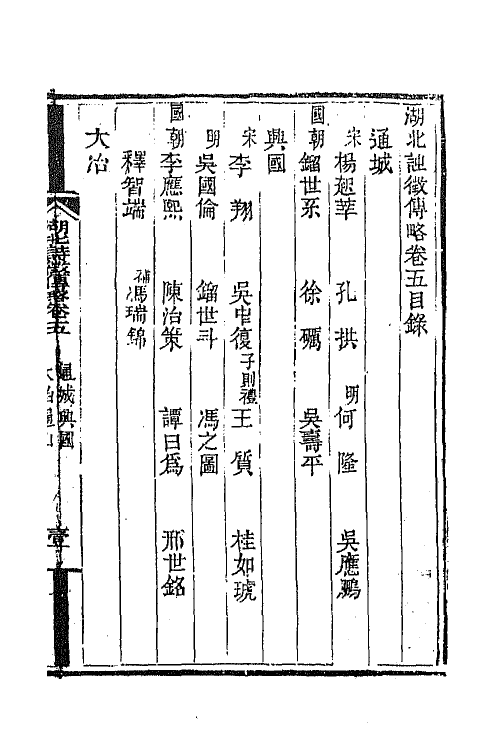 湖北詩徵傳略卷五目錄
通城
宋 楊起莘 孔拱 明 何隆 吳應鵬
國朝 鎦世系 徐礪 吳壽平
興國
宋 李翔 吳中復 子則禮 王質 桂如琥
明 吳國倫 鎦世斗 馮之圖
國朝 李應熙 陳治策 譚曰爲 邢世銘
釋智端 補馮瑞錦
大冶
湖北詩徵傳略卷五 通城興國 壹